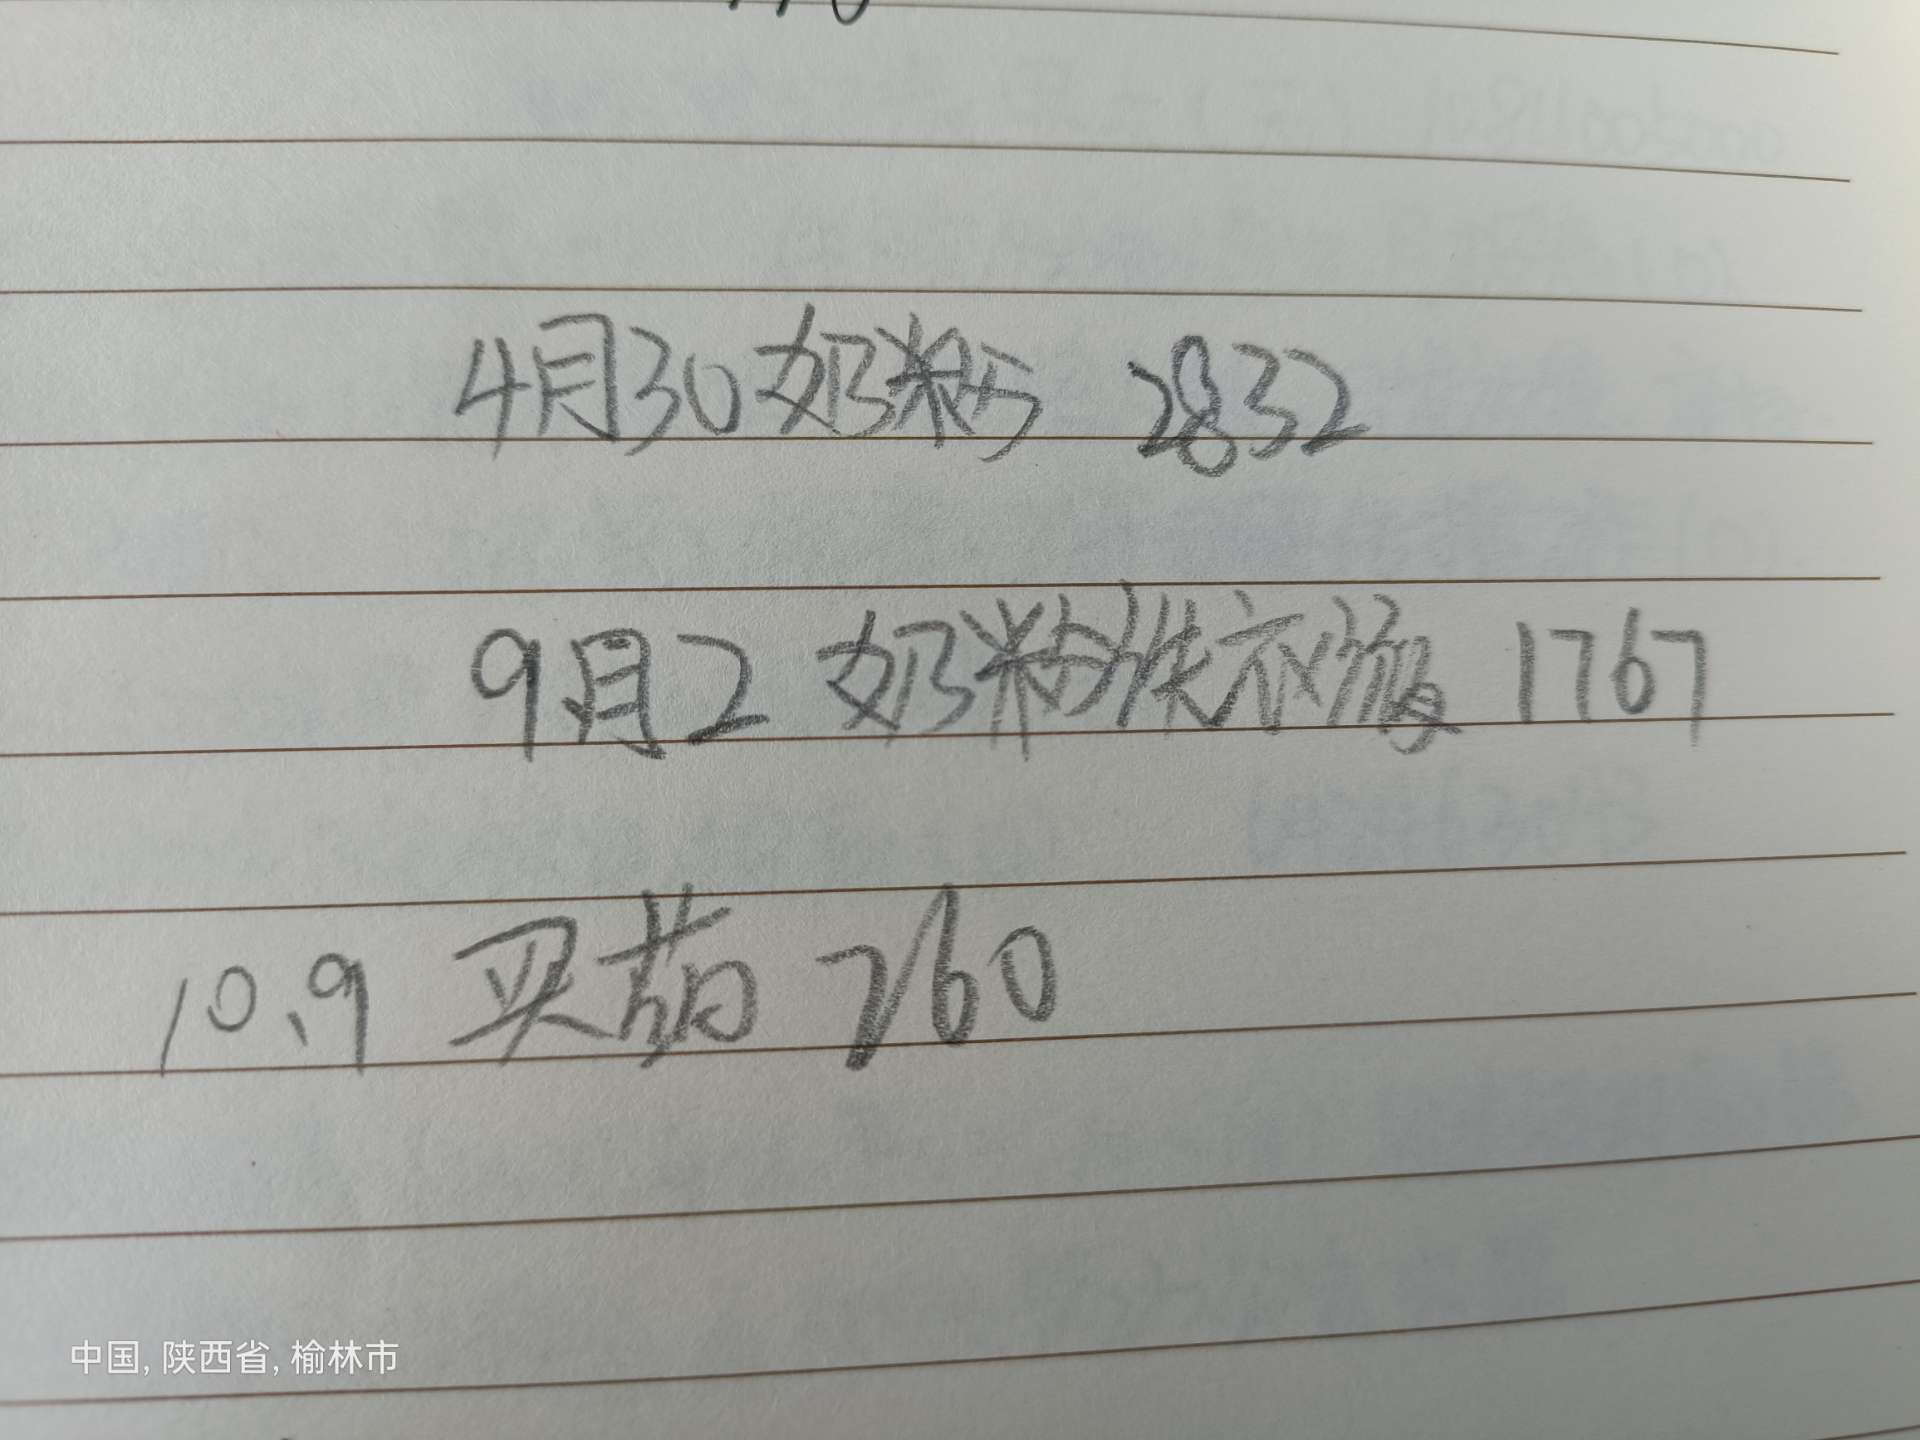 4月30奶粉 2832
9月2 奶粉洗衣液 1767
10.9 买药 760
中国, 陕西省, 榆林市